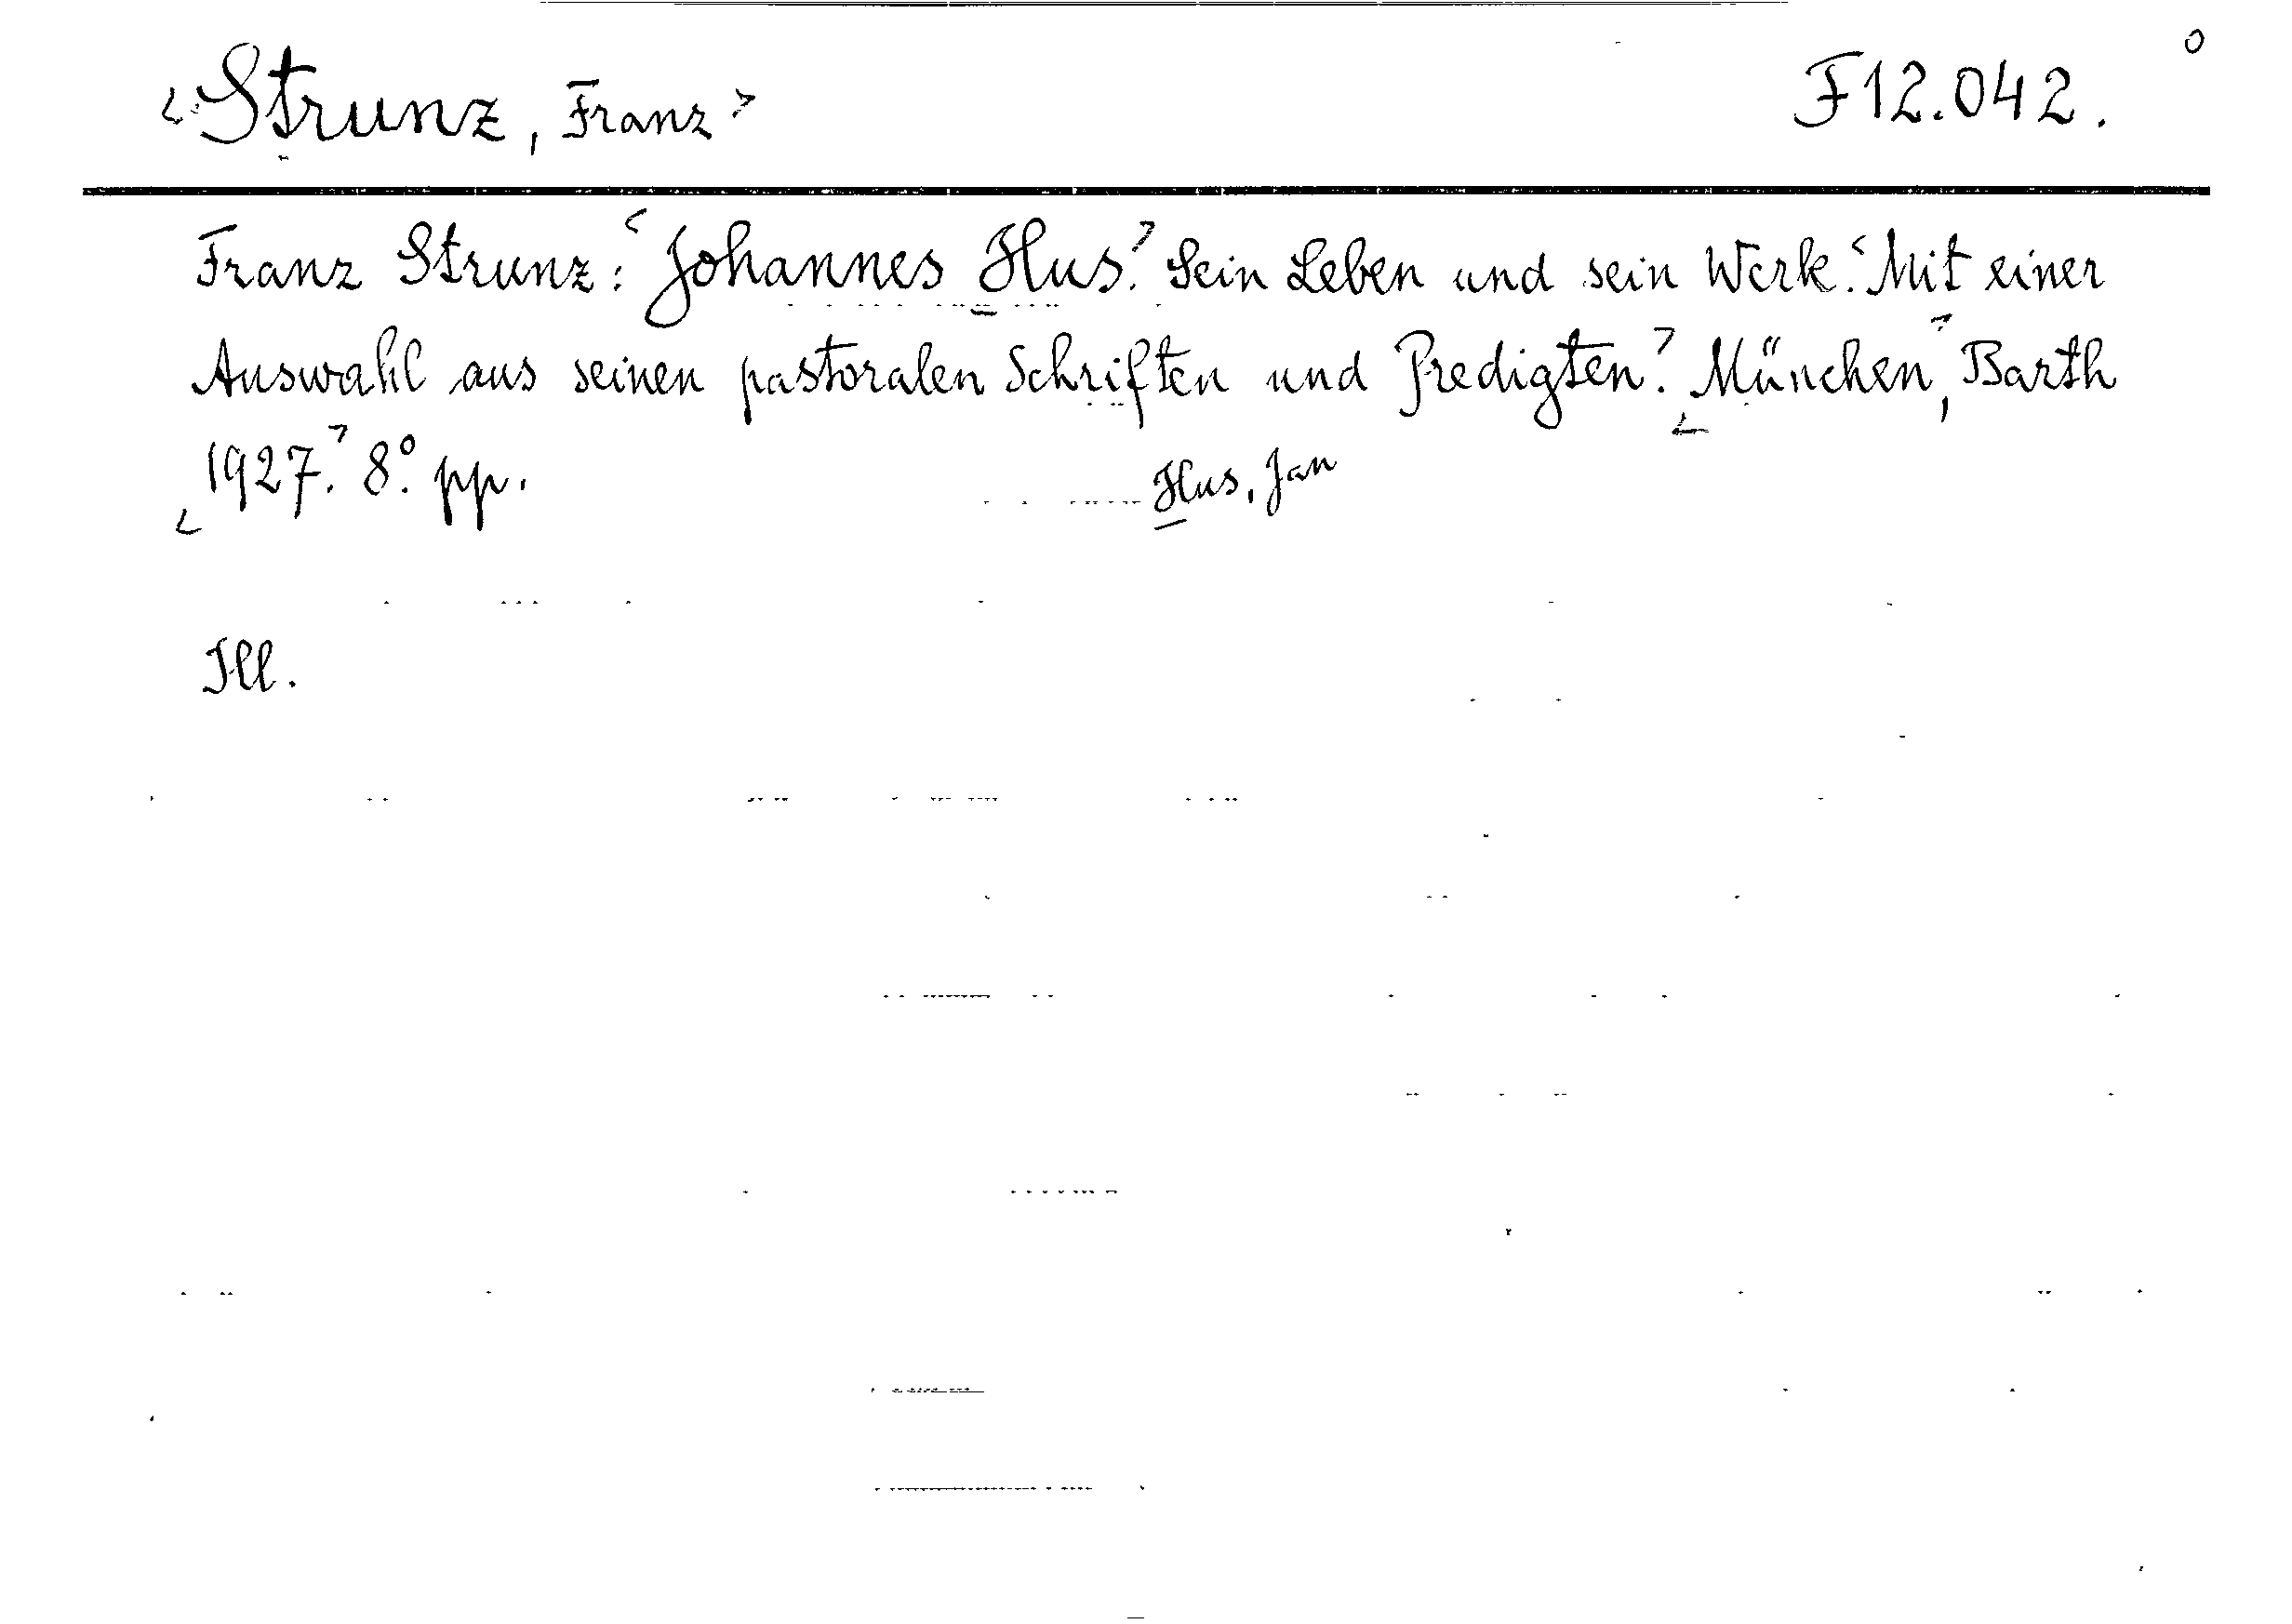 <Strunz, Franz> F 12.042.
Franz Strunz: <Johannes Hus.> Sein Leben und sein Werk. <Mit einer
Auswahl aus seinen pastoralen Schriften und Predigten.> <München>, Barth
<1927.> 8°. pp. Hus, Jan
Ill.